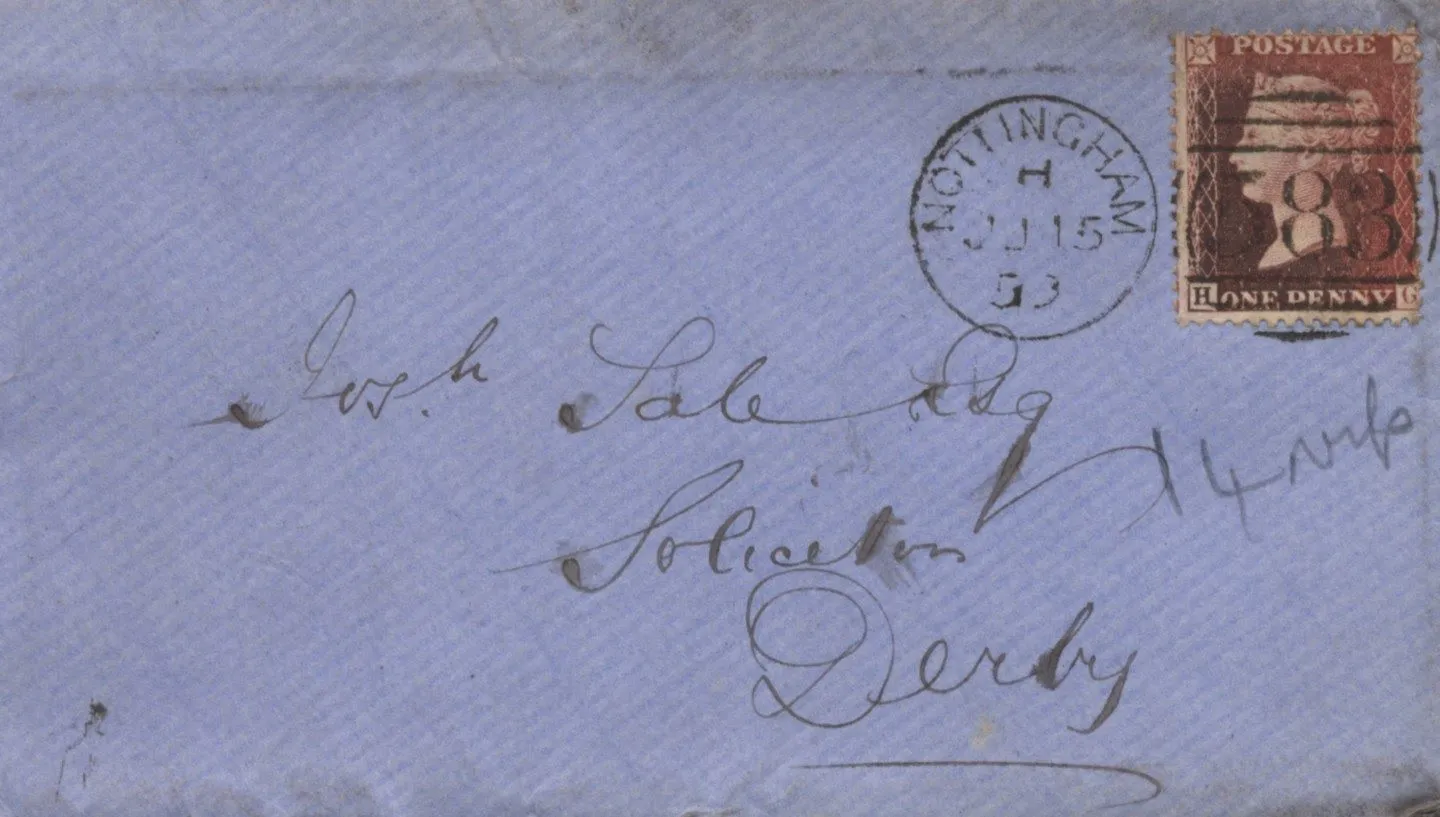 POSTAGE
NOTTINGHAM
H
JU 15
583
H ONE PENNY G
Josh. Sale Esq
Solicitor
Derby